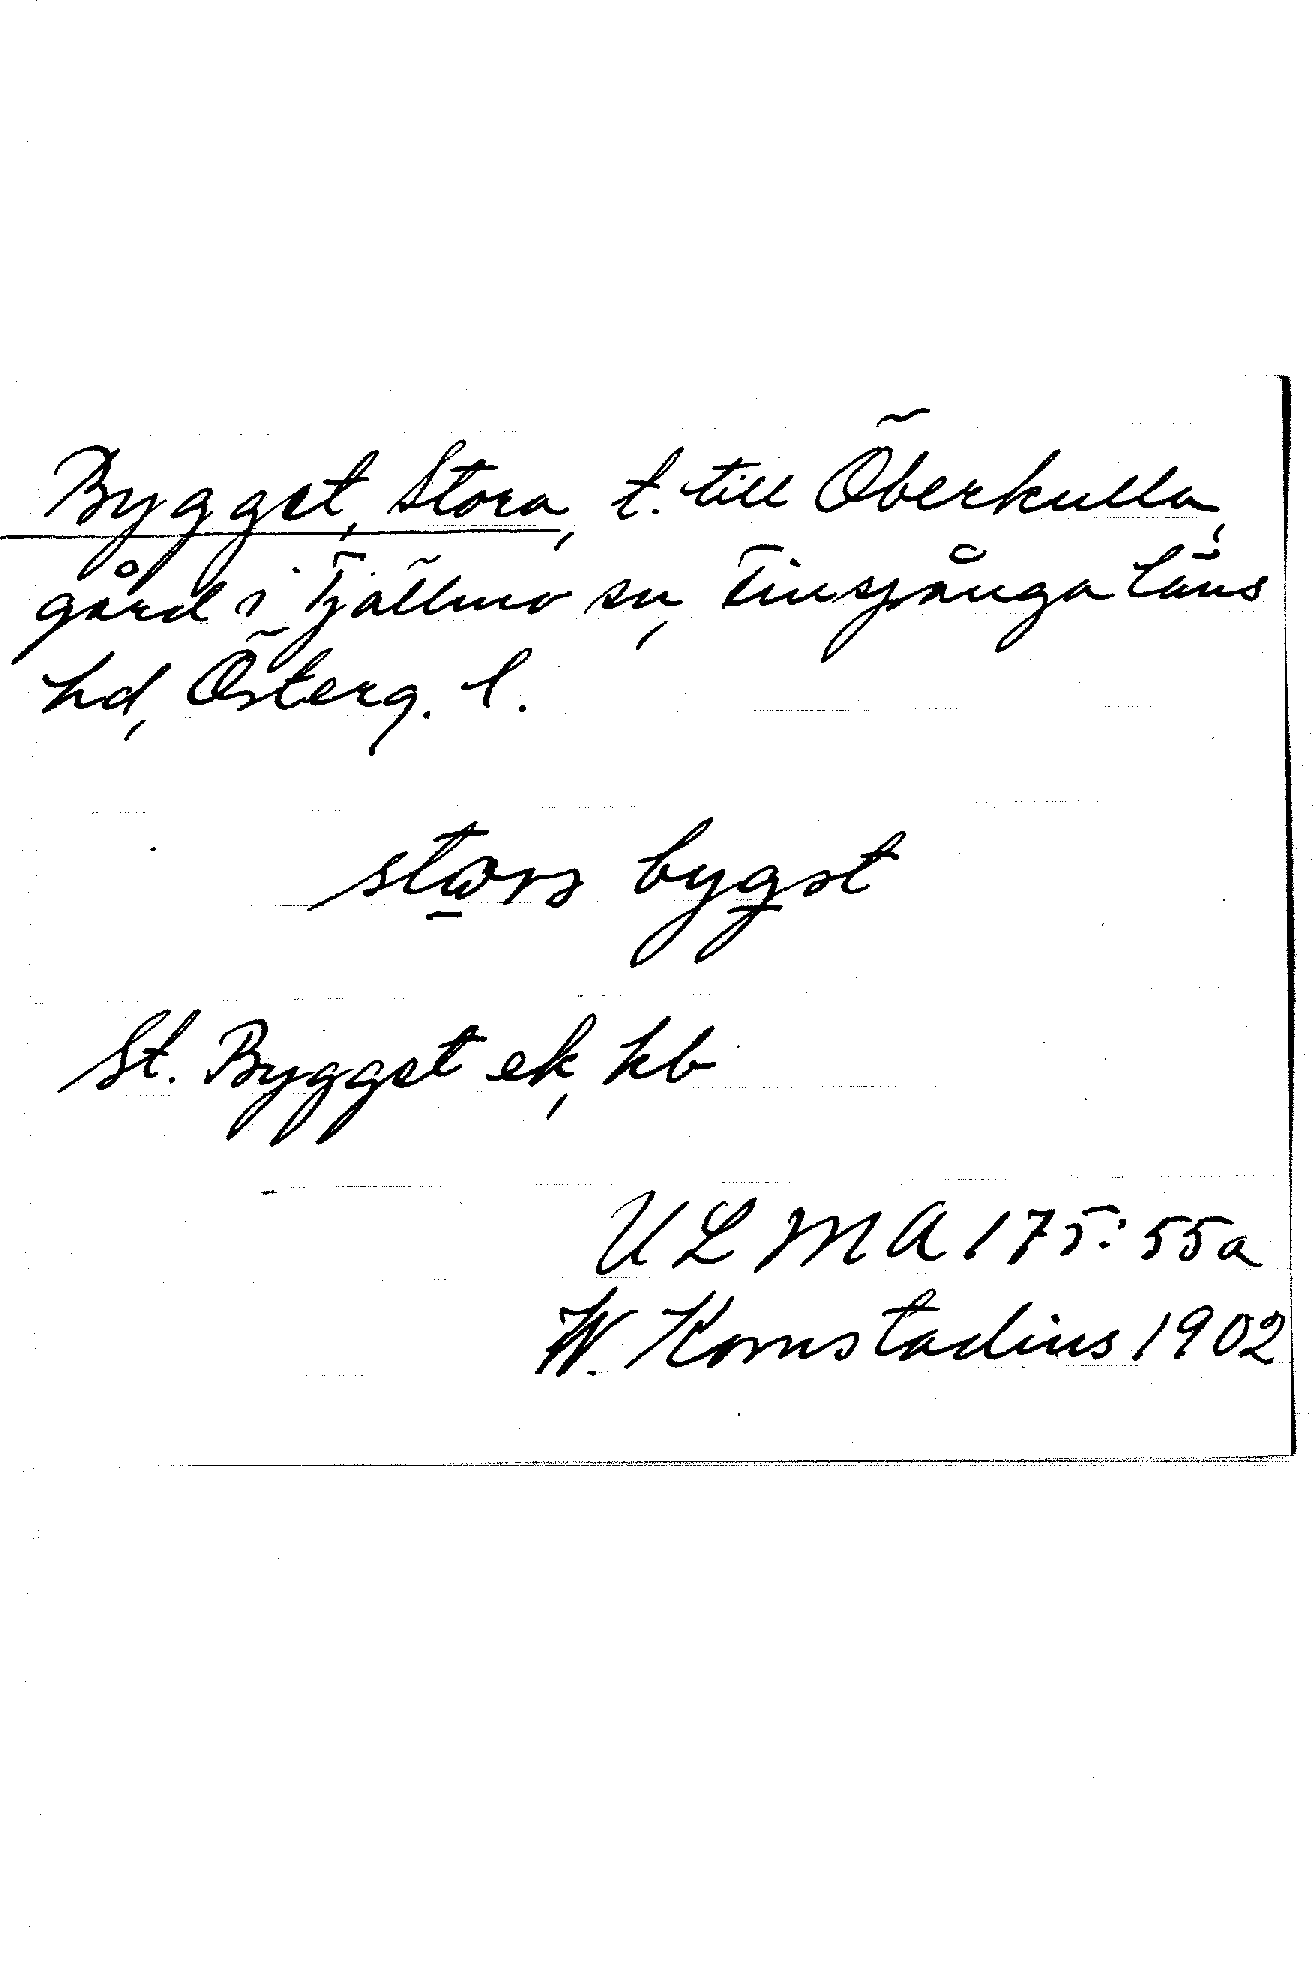 Bygget, Stora, t. till Öberkulla,
gård i Tjällmo sn, Finspånga läns
hd, Österg. l.
bygst
St. Bygget ek, kb
ULMA 175:55a
W. Kornstadius 1902